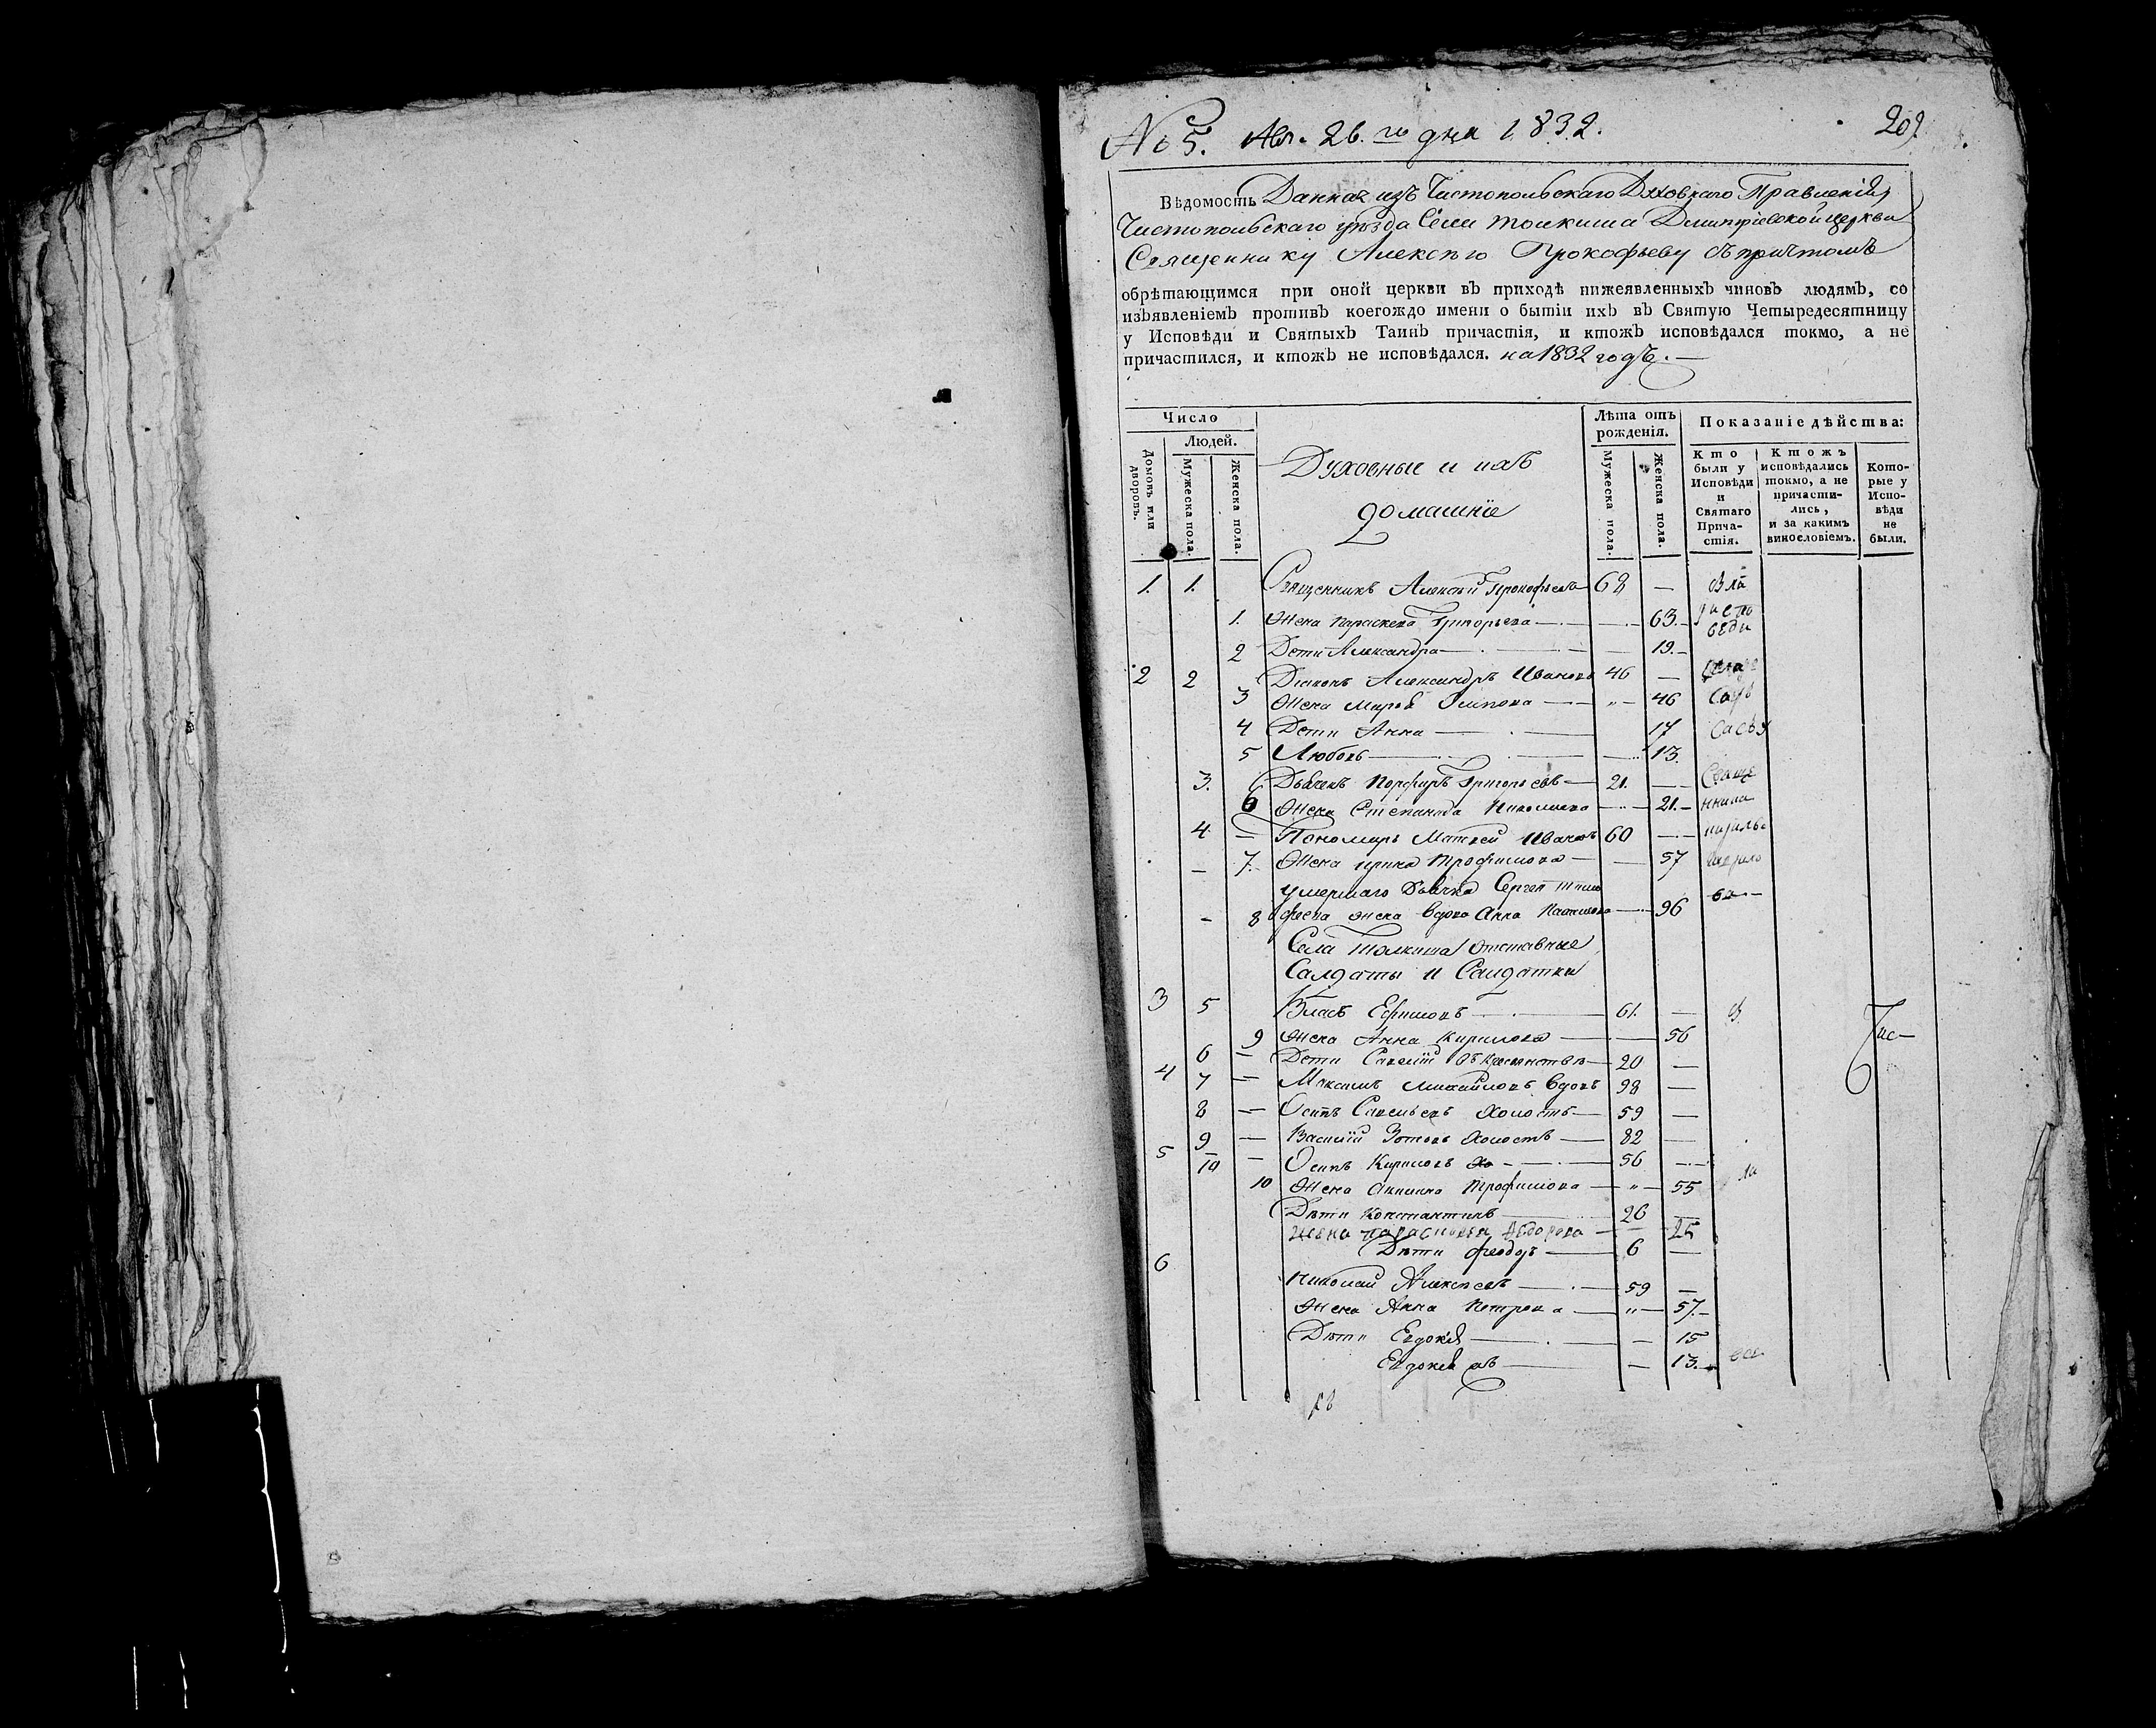 № 5. Авг. 26. го дня 1832.
Вѣдомость Данная изъ Чистопольскаго Духовнаго Правленія
Чистопольскаго уѣзда Села Толкиша Дмитріевской церкви
Священнику Алексѣю Прокофьеву съ причтомъ
обрѣтающимся при оной церкви въ приходѣ нижеявленныхъ чиновъ людямъ, со
изъявленіемъ противъ коегождо имени о бытіи ихъ въ Святую Четыредесятницу
у Исповѣди и Святыхъ Таинъ причастія, и ктожъ исповѣдался токмо, а не
причастился, и ктожъ не исповѣдался. на 1832 годъ.—
Число
Людей.
Домовъ или дворовъ.
Мужеска пола.
Женска пола.
Духовные и ихъ
домашніе
Лѣта отъ рожденія.
Мужеска пола.
Женска пола.
Показаніе дѣйства:
Кто были у Исповѣди и Святаго Прича-стія.
Ктожъ исповѣдались токмо, а не причасти-лись, и за какимъ винословіемъ.
Кото-рые у Испо-вѣди не были.
1. 1. Священникъ Алексѣй Прокофьевъ 68 —
1. Жена Параскева Григорьева — 63.—
2 Дети Александра — 19.—
2 2 Діаконъ Александръ Ивановъ 46 —
3 Жена Марѳа Осипова — 46
4 Дети Анна — 17
5 Любовь — 13.
3. Дьячекъ Порфиръ Григорьевъ — 21. — Свяще
6 Жена Степанида Николаева — 21.— нника
4 — Пономарь Матвей Ивановъ 60 —
— 7. Жена Ирина Трофимова — 57
умершаго Дьячка Сергея Тимо
— 8 феева жена вдова Анна — 96
Села Толкиша Отставные
Салдаты и Салдатки
3 5 Власъ Ефимовъ — 61. —
9 Жена Анна Кирилова — 56
6 — Дети Савелій — 20 —
4 7 — Максимъ Михайловъ вдовъ 98 —
8 — Осипъ Савельевъ холостъ — 59 —
9 — Василій Зотовъ холостъ — 82 —
5 10 — Осипъ Кириловъ — 56 —
10 Жена Акилина Трофимова — 55
Дѣти Константинъ — 26 —
Жена Парасковья Ѳедорова — 25
Дѣти Феодоръ — 6 —
6 Николай Алексѣевъ — 59 —
Жена Анна Петрова — 57.—
Дѣти Евдокія — 15
Евдокея — 13.—